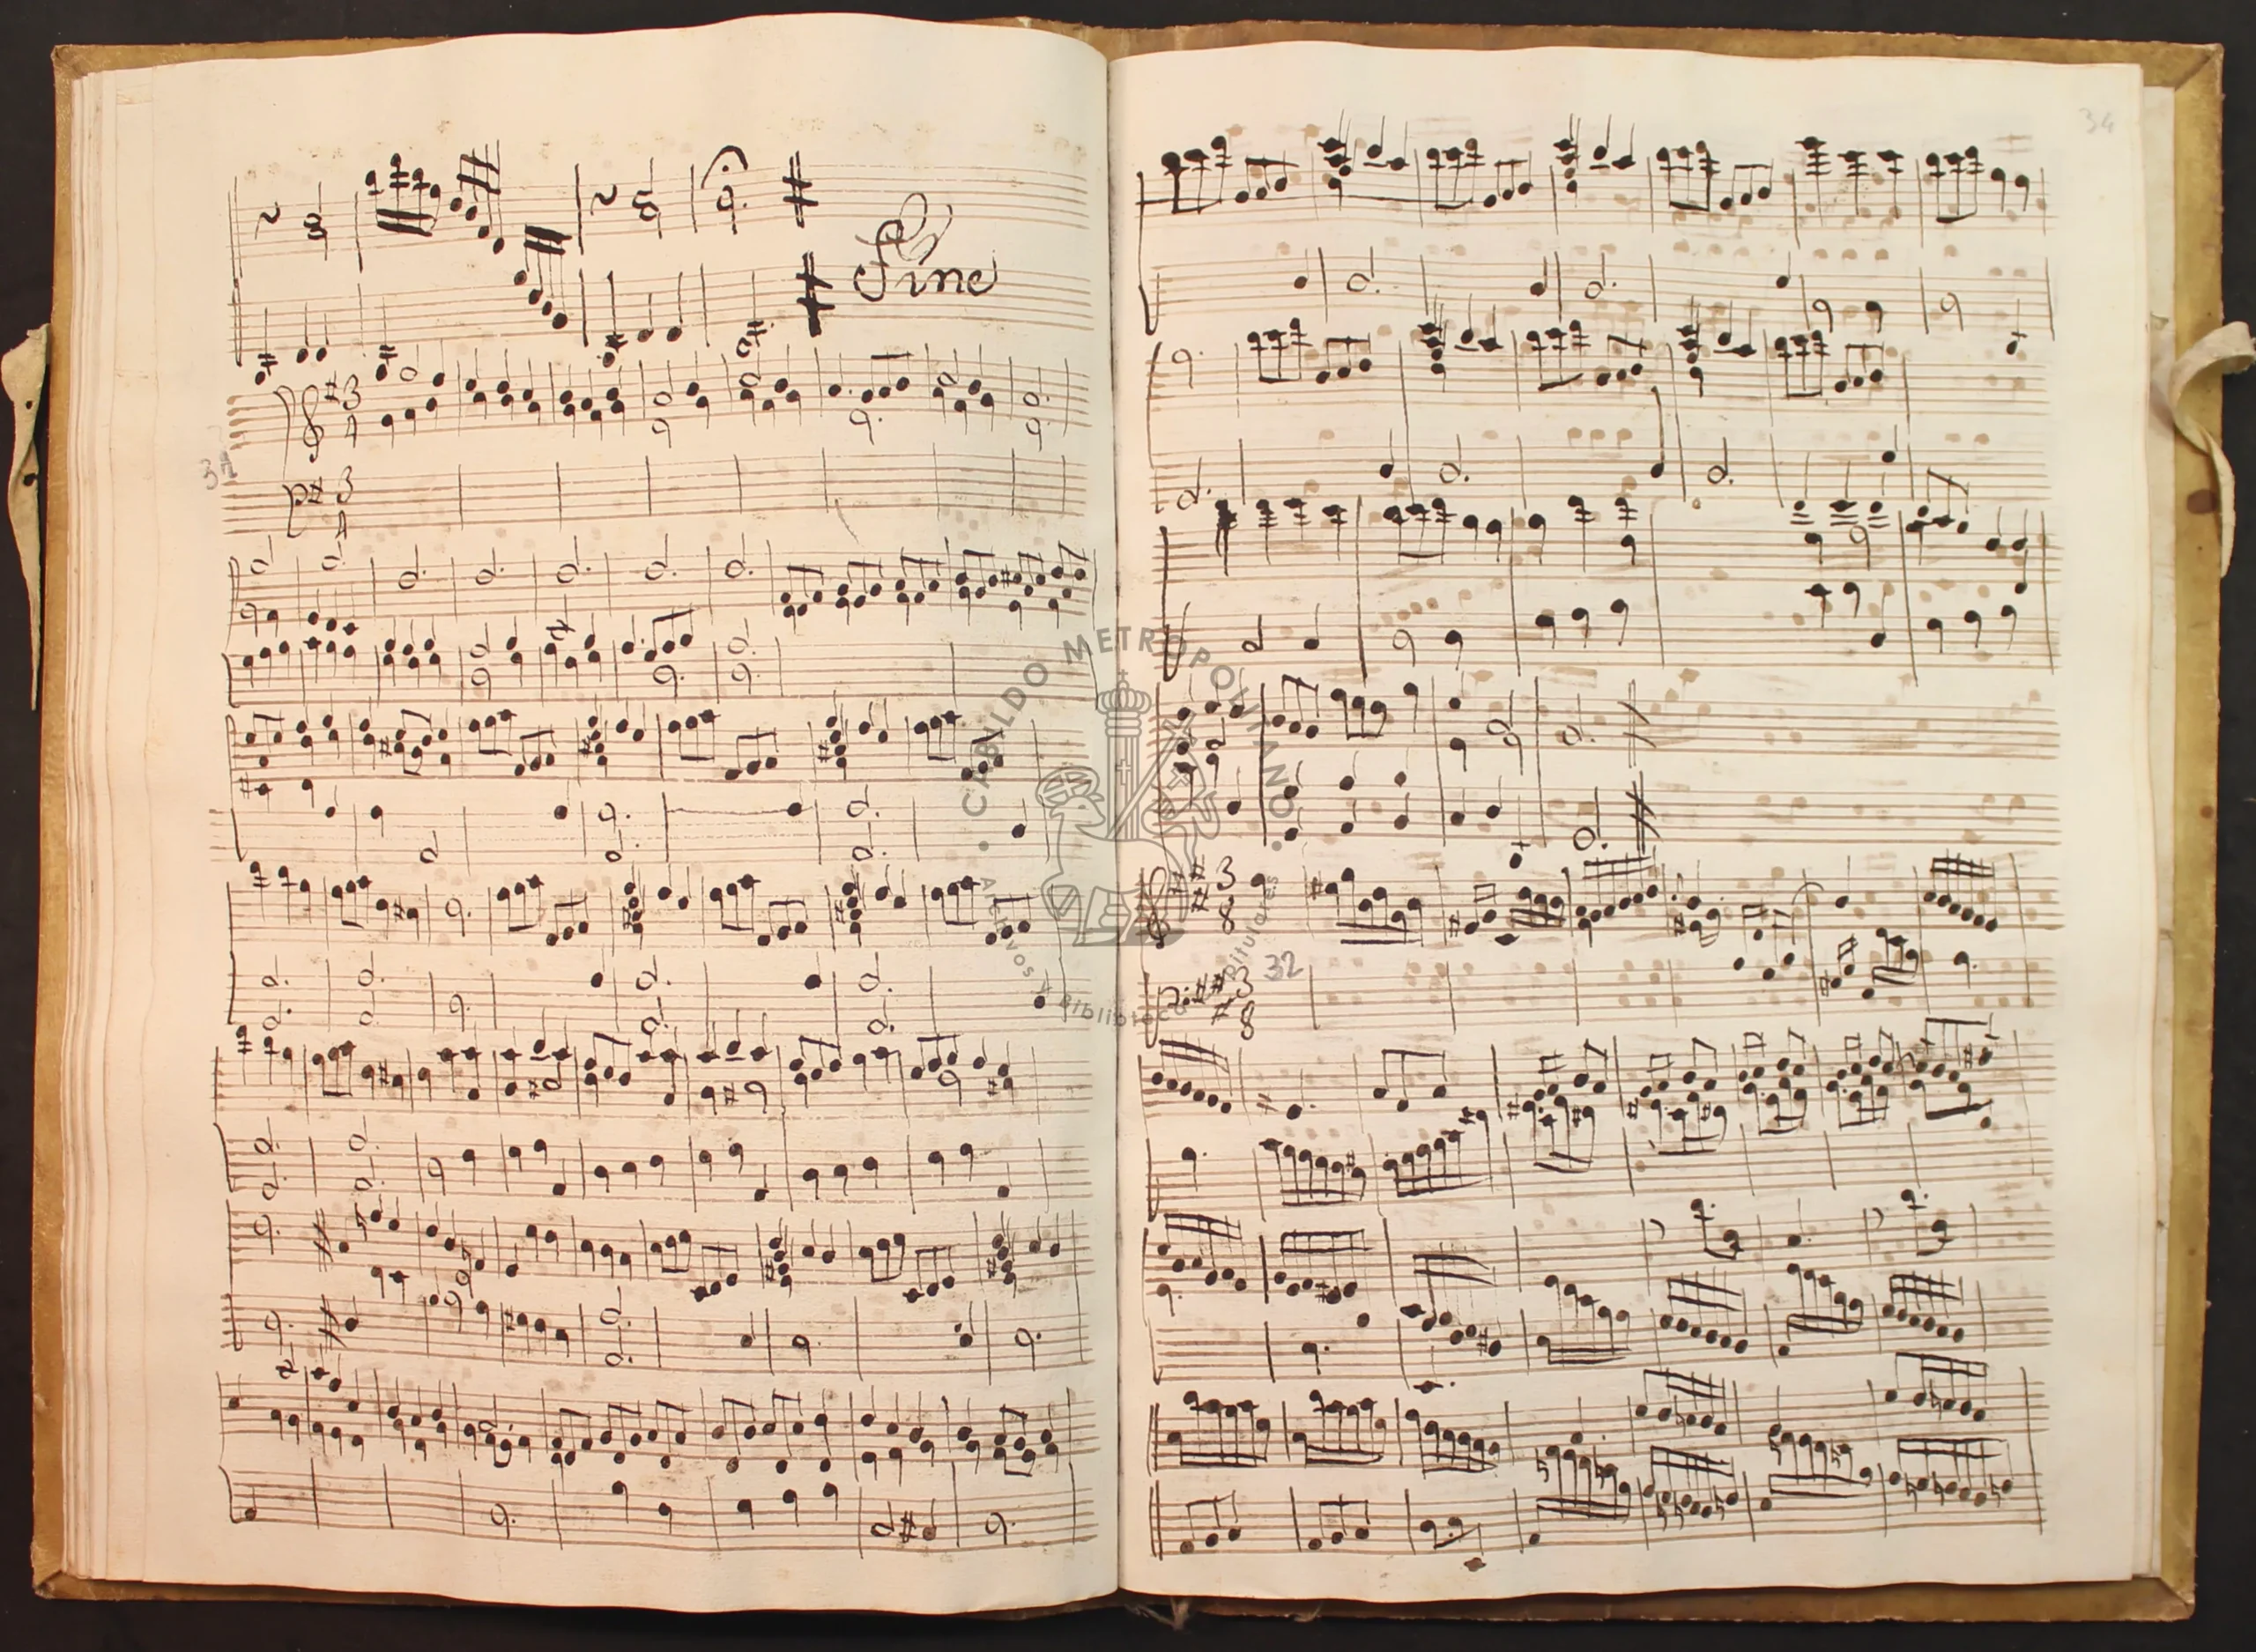 Fine
3
4
3
4
31
34
3
8
32
3
8
CABILDO METROPOLITANO
Archivos y Bibliotecas Capitulares